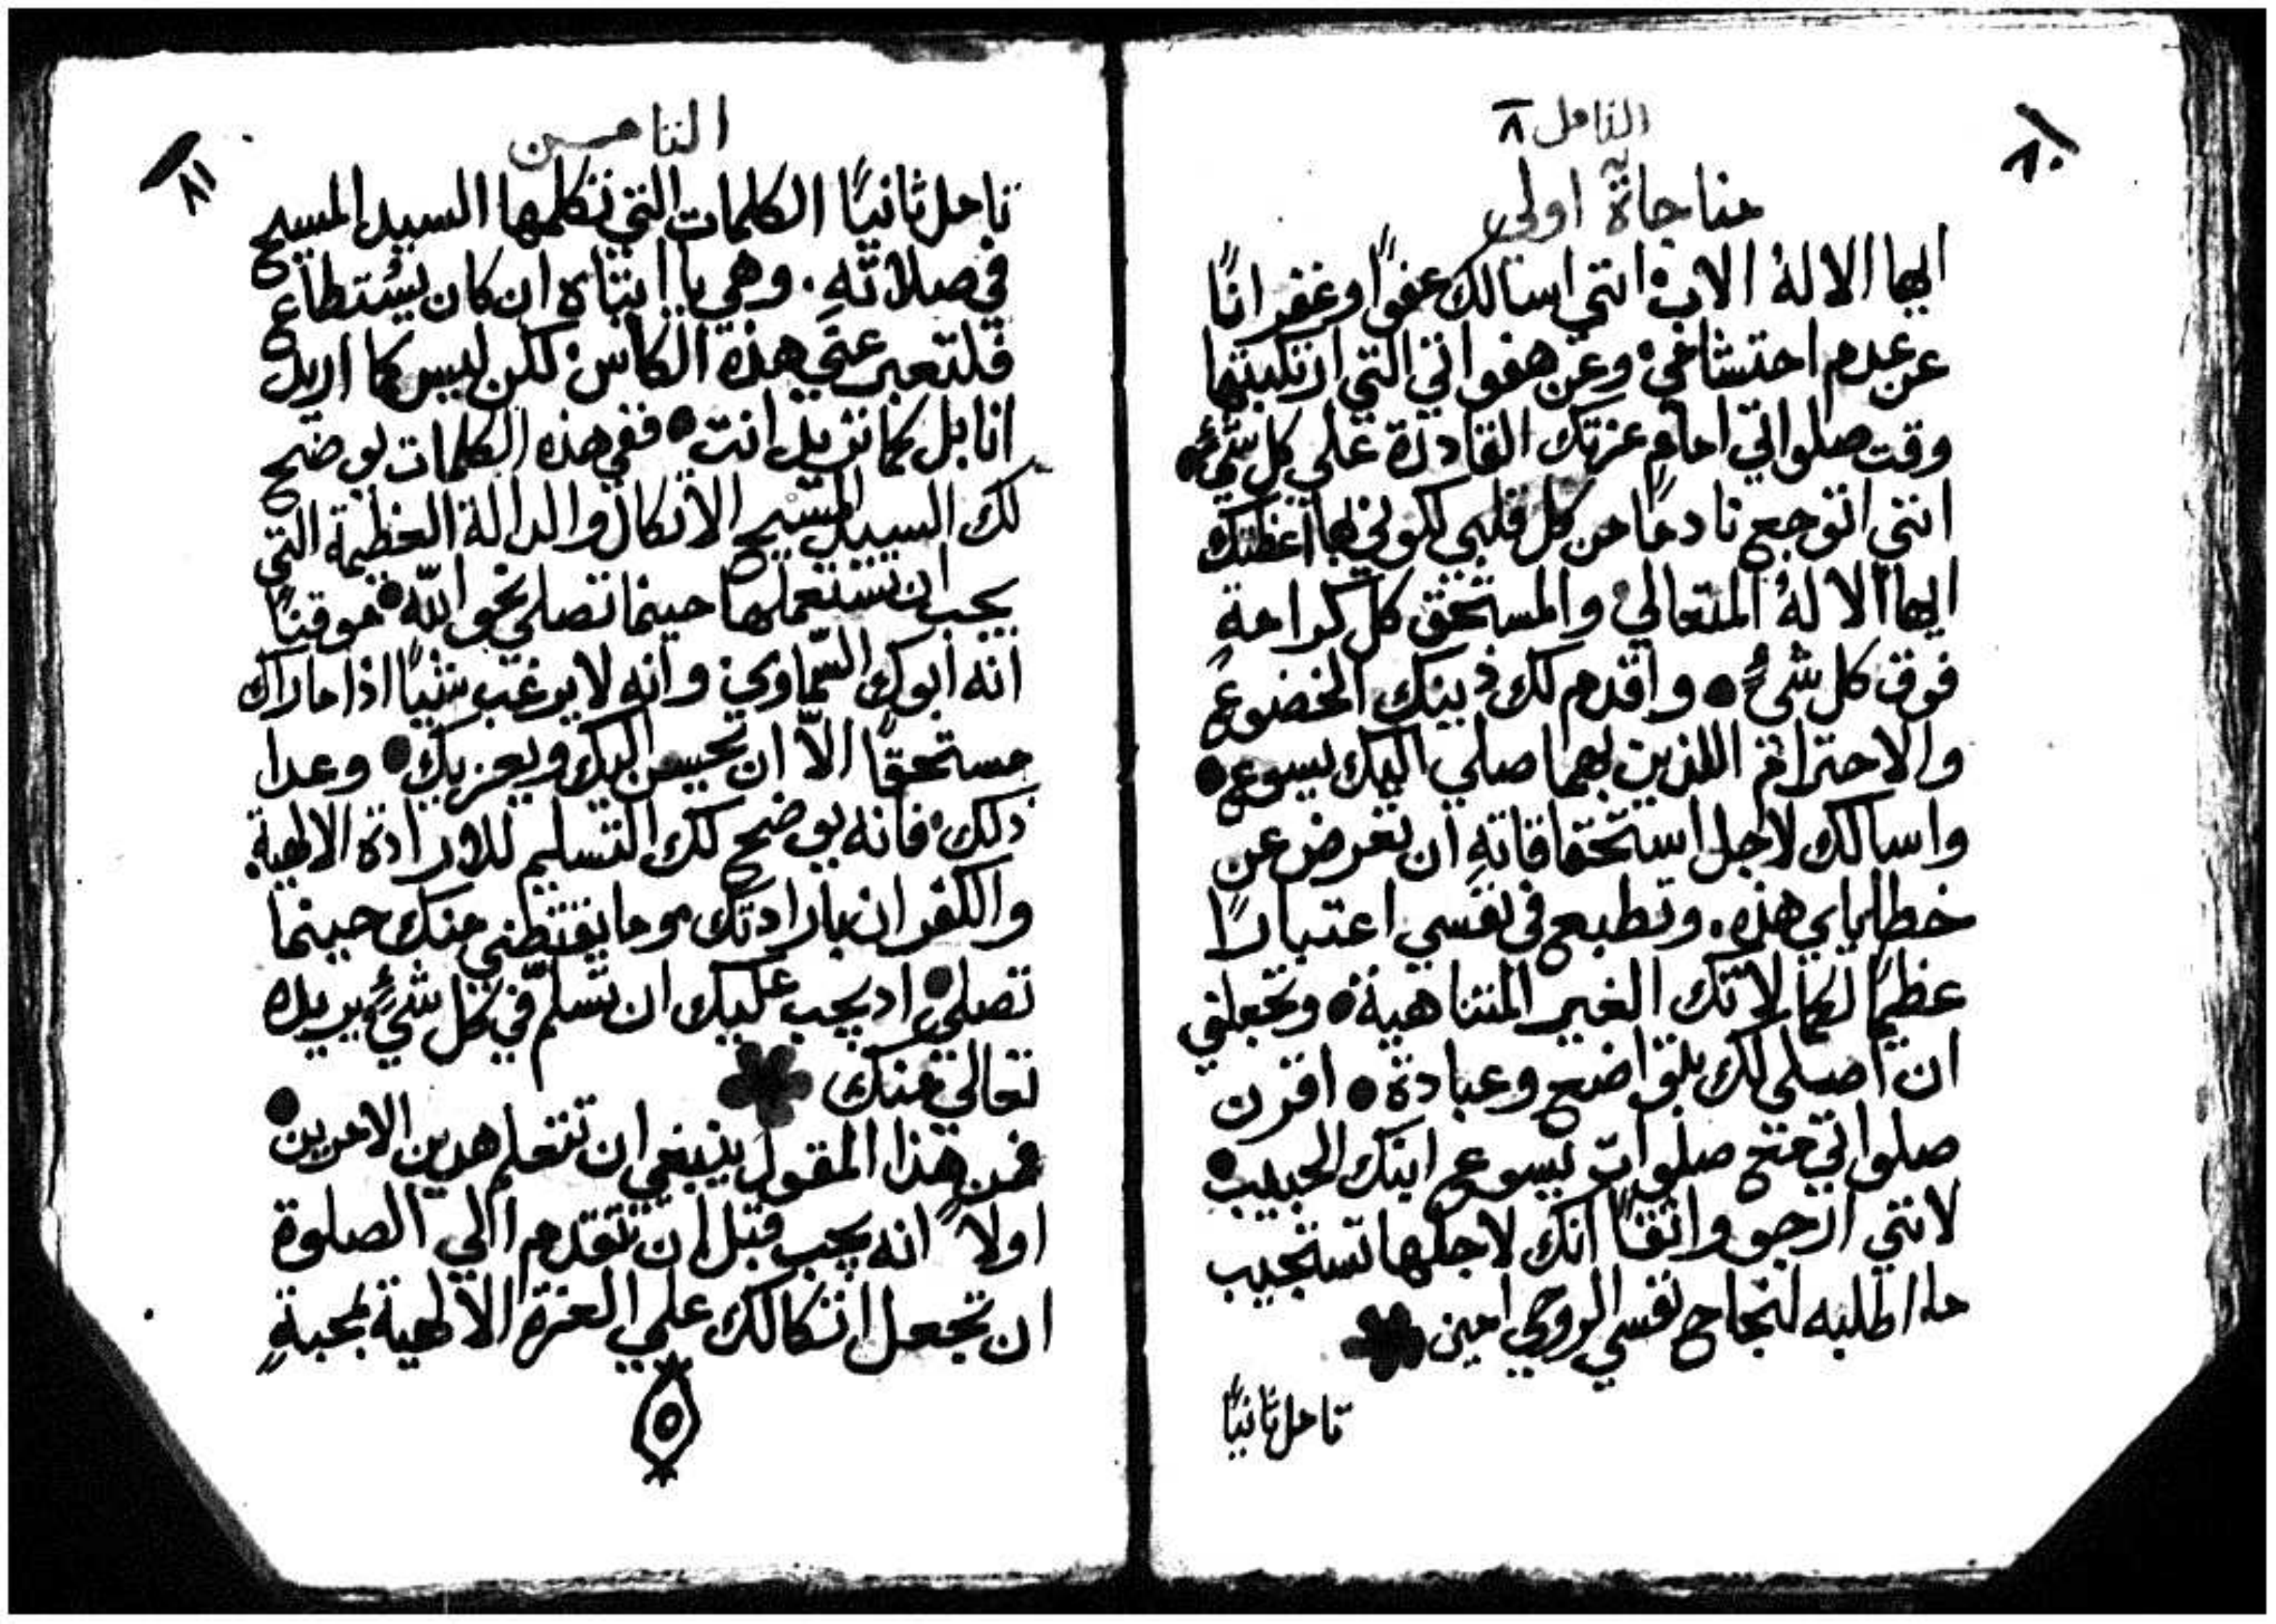 التامل ٨
٨٠
مناجاة اولى
ايها الاله الاب انني اسالك عفوًا وغفرانًا
عن عدم احتشامي وعن هفواتي التي ارتكبتها
وقت صلواتي امام عزتك القادرة علي كل شيء
انني اتوجع نادمًا من كل قلبي لكوني بها اغظتك
ايها الاله المتعالي والمستحق كل كرامةٍ
فوق كل شيءٍ واقدم لك ذينك الخضوع
والاحترام اللذين بهما صلي اليك يسوع
واسالك لاجل استحقاقاتهِ ان تعرض عن
خطاياي هذه. وتطبع في نفسي اعتبارًا
عظيمًا لكمالاتك الغير المتناهية وتجعلني
ان اصلي لك بتواضع وعبادة اقرن
صلواتي مع صلوات يسوع ابنك الحبيب
لانني ارجو واثقًا انك لاجلها تستجيب
ما اطلبه لنجاح نفسي الروحي امين
تامل ثانيًا
الثامن
٨١
تامل ثانيًا الكلمات التي تكلمها السيد المسيح
في صلاتهِ. وهي يا ابتاه ان كان يستطاع
فلتعبر عني هذه الكاس لكن ليس كما اريد
انا بل كما تريد انت ففي هذه الكلمات يوضح
لك السيد المسيح الاتكال والدالة العظيمة التي
يجب ان تستعملها حينما تصلي نحو اللّه موقنًا
انه ابوك السّماوي وانه لا يرغب شيًا اذا ما راك
مستحقًا الّا ان يحسن اليك ويعزيك وعدا
ذلك فانه يوضح لك التسليم للارادة الالهية
والكفران بارادتك وما يقتضي منك حينما
تصلي اد يجب عليك ان تسلّم في كل شيءٍ يريده
تعالي منك
فمن هذا المقول ينبغي ان تتعلم هدين الامرين
اولًا انه يجب قبل ان تتقدم الي الصلوة
ان تجعل اتكالك علي العزة الالهية بمحبةٍ